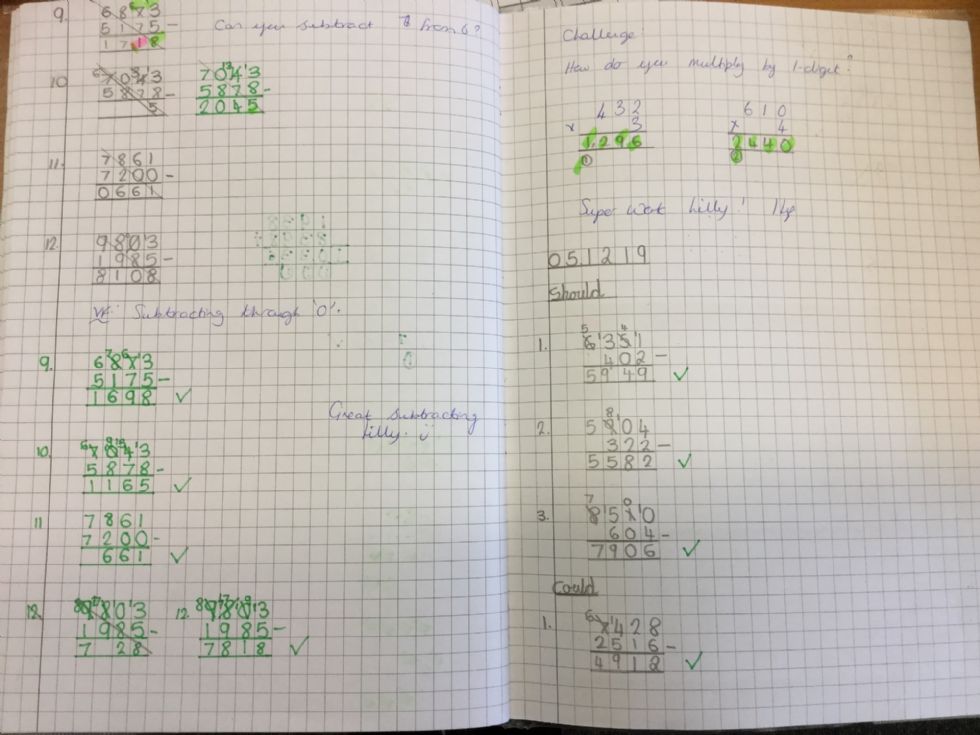 9. 6873
5175 –
1718
Can you subtract 8 from 6?
10 7043
5878 –
5
7043
5878 –
2045
11. 7861
7200 –
0661
12. 9803
1985 –
8108
VF: Subtracting through '0'.
9. 6873
5175 –
1698 ✓
Great subtracting
Lilly.
10. 7043
5878 –
1165 ✓
11 7861
7200 –
661 ✓
12. 9803
1985 –
7 28
12. 9803
1985 –
7818 ✓
Challenge:
How do you multiply by 1-digit?
432
x 3
1,296
1
610
x 4
2440
2
Super work Lilly! 1Hp
05.12.19
Should
1. 6351
402 –
5949 ✓
2. 5904
322 –
5582 ✓
3. 8510
604 –
7906 ✓
Could
1. 7428
2516 –
4912 ✓